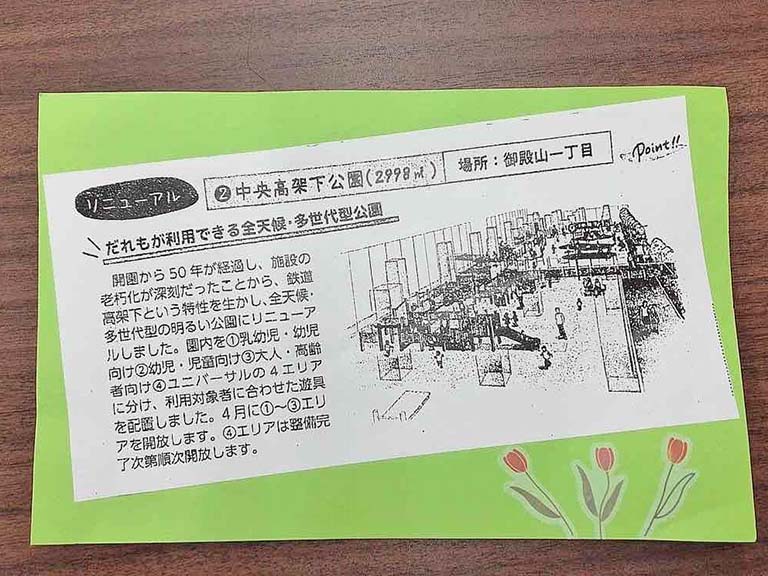 リニューアル
❷中央高架下公園(2998㎡)
場所：御殿山一丁目
Point!!
だれもが利用できる全天候・多世代型公園
開園から50年が経過し、施設の
老朽化が深刻だったことから、鉄道
高架下という特性を生かし、全天候・
多世代型の明るい公園にリニューア
ルしました。園内を①乳幼児・幼児
向け②幼児・児童向け③大人・高齢
者向け④ユニバーサルの4エリア
に分け、利用対象者に合わせた遊具
を配置しました。4月に①～③エリ
アを開放します。④エリアは整備完
了次第順次開放します。